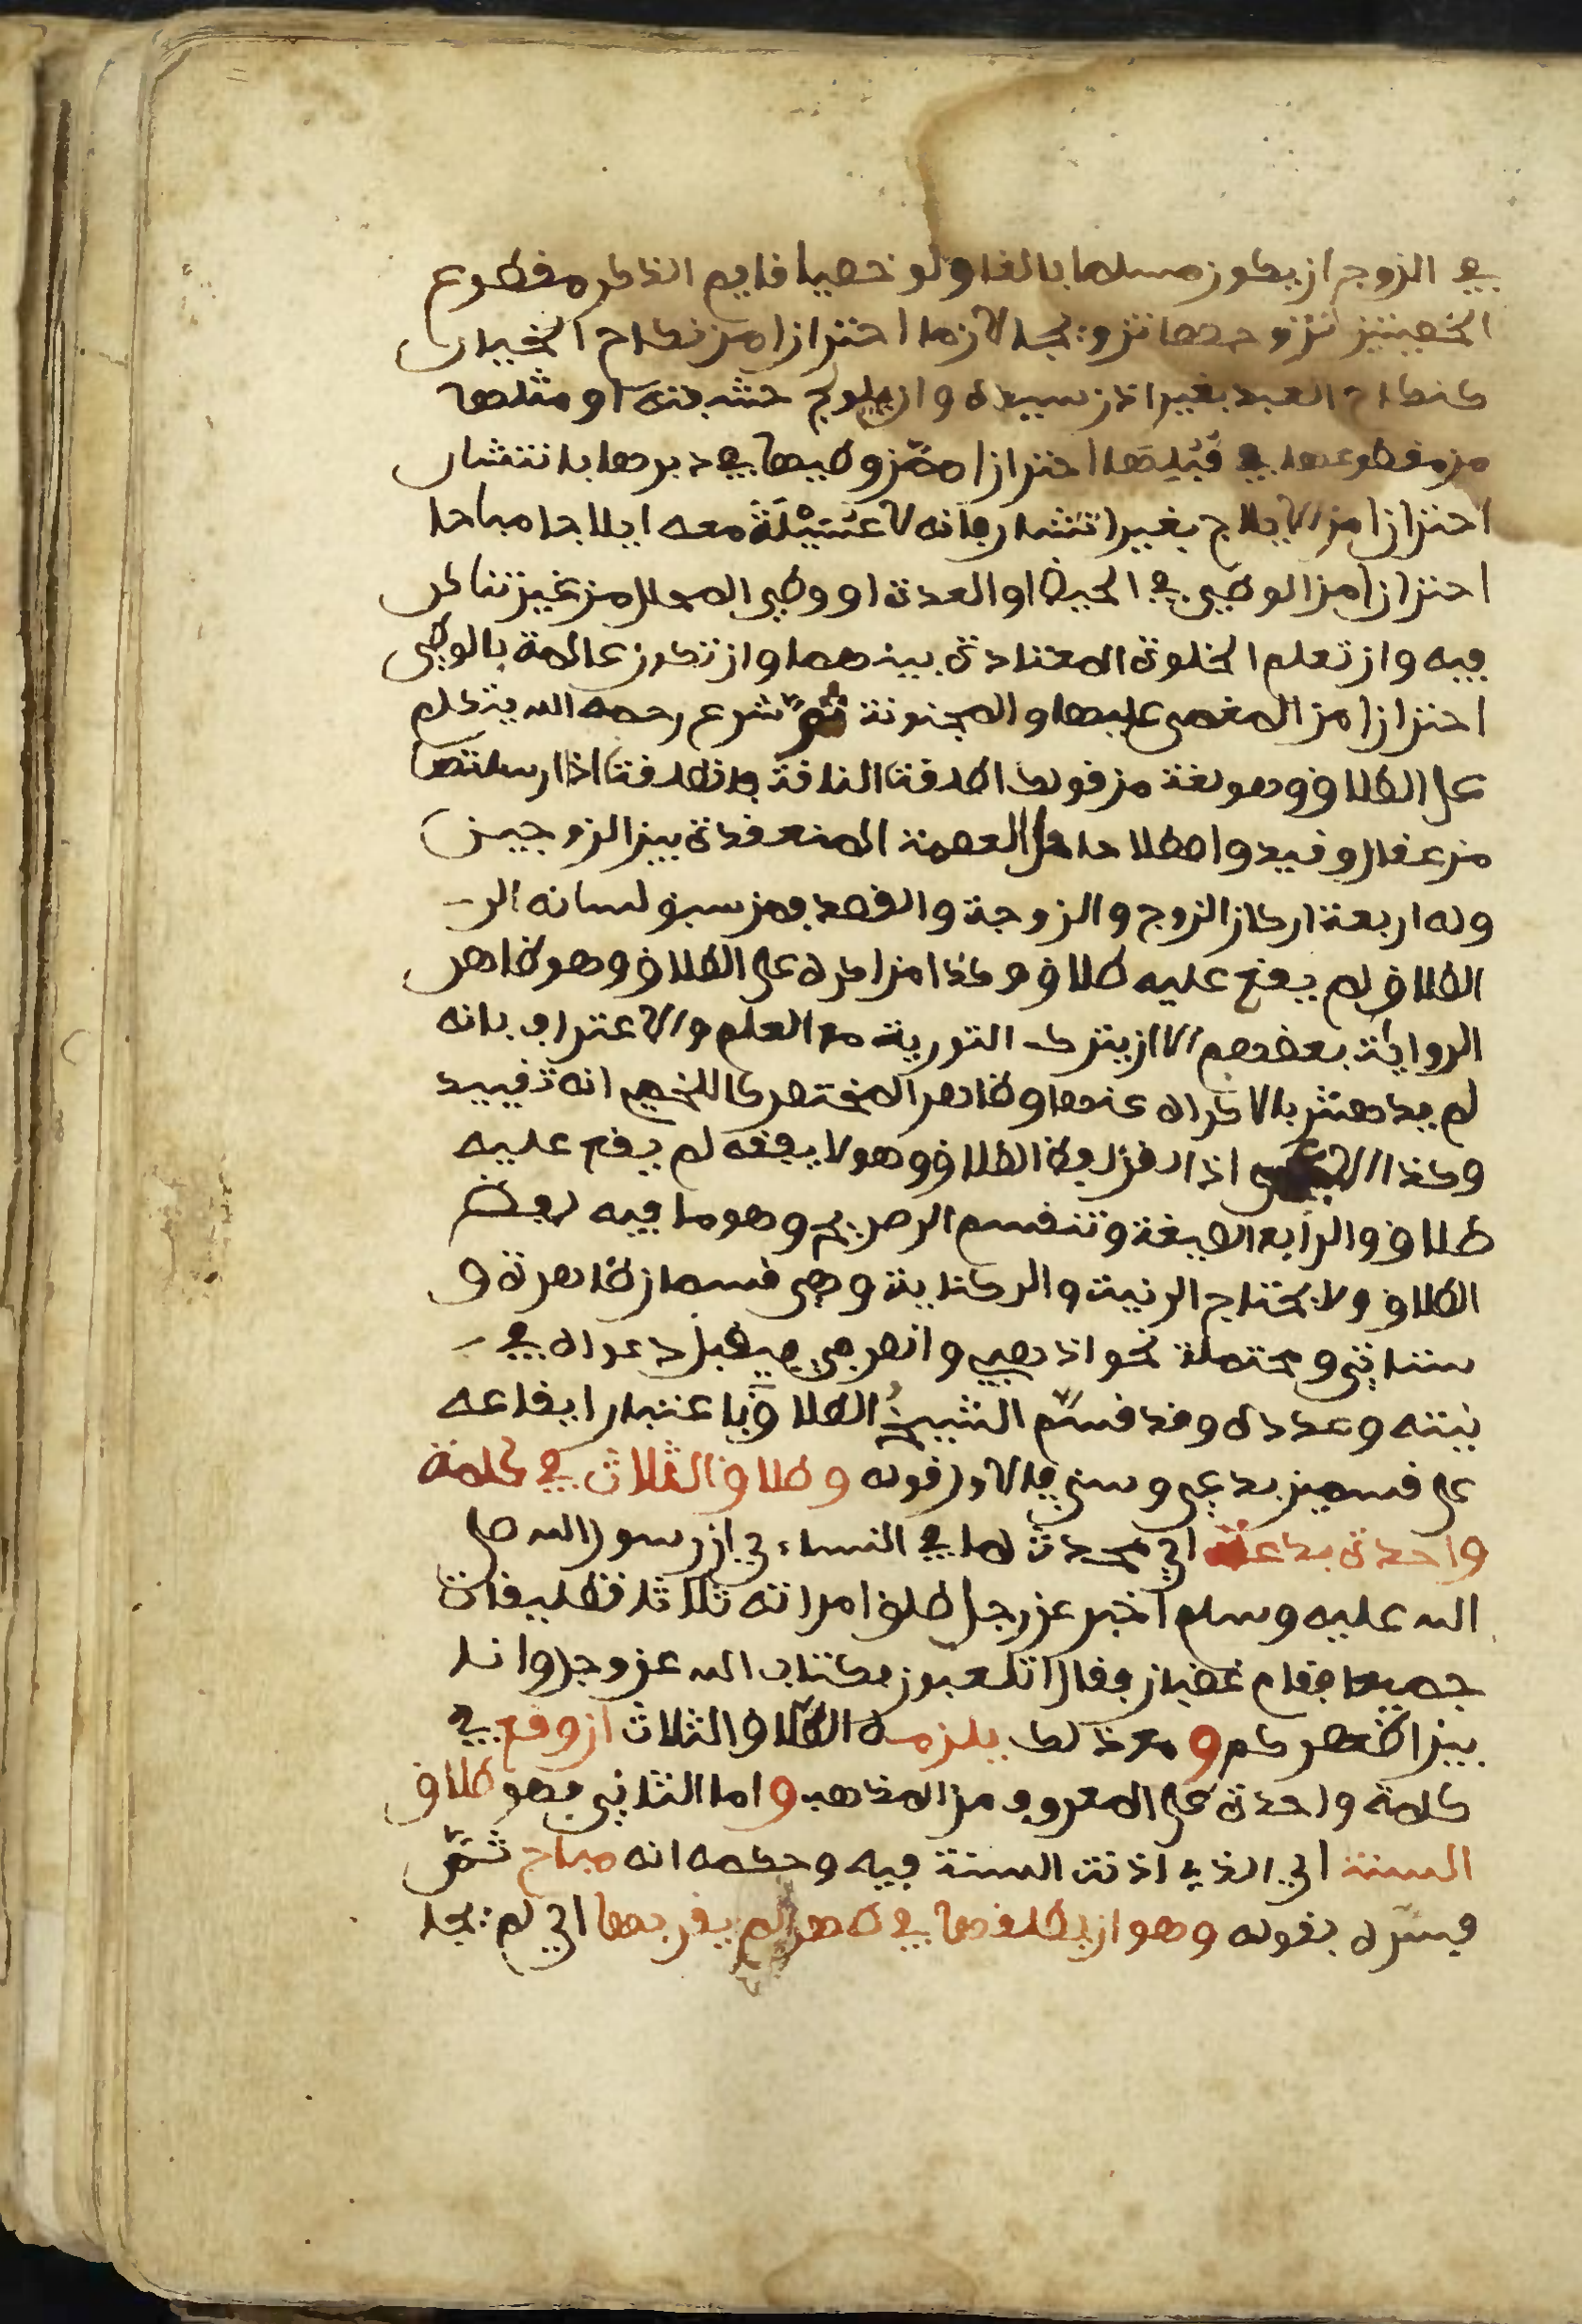 في الزوج ان يكون مسلما بالغا ولو خصيا قايم الذكر مقطوع
الخصيتين تزوجها تزويجا لازما احترازا من نكاح الخيار
كنكاح العبد بغير اذن سيده وان يولج حشفته او مثلها
من مقطوعها في قبلها احترازا من وطيها في دبرها بانتشار
احترازا من الايلاج بغير انتشار فانه لا عسيلة معه ايلاجا مباحا
احترازا من الوطي في الحيض او العدة او وطي المحلل من غير تناكر
فيه وان تعلم الخلوة المعتادة بينهما وان تكون عالمة بالوطي
احترازا من المغمى عليها والمجنونة ثم شرع رحمه الله يتكلم
على الطلاق وهو لغة من قولك اطلقت الناقة فانطلقت اذا ارسلتها
من عقال وقيد واصطلاحا حل العصمة المنعقدة بين الزوجين
وله اربعة اركان الزوج والزوجة والقصد فمن سبق لسانه الى
الطلاق لم يقع عليه طلاق وكذا من اكره على الطلاق وهو ظاهر
الرواية بعضهم الا ان يترك التورية مع العلم والاعتراف بانه
لم يدهش بالاكراه عنها وظاهر المختصر كاللخمي انه تقييد
وكذا الاعجمي اذا لقن لفظ الطلاق وهو لا يفقه لم يقع عليه
طلاق والرابع الصيغة وتنقسم الى صريح وهو ما فيه لفظ
الطلاق ولا يحتاج الى نية والى كناية وهي قسمان ظاهرة و
ستاتي ومحتملة نحو اذهبي وانصرفي فيقبل دعواه في
نيته وعدده وقد قسم الشيخ الطلاق باعتبار ايقاعه
على قسمين بدعي وسني فالاول قوله وطلاق الثلاث في كلمة
واحدة بدعة اي محدث لما في النساءي ان رسول الله صلى
الله عليه وسلم اخبر عن رجل طلق امراته ثلاث تطليقات
جميعا فقام غضبان فقال اتلعبون بكتاب الله عز وجل وانا
بين اظهركم و مع ذلك يلزمه الطلاق الثلاث ان وقع في
كلمة واحدة على المعروف من المذهب واما الثاني فهو طلاق
السنة اي الذي اذنت السنة فيه وحكمه انه مباح ثم
فسره بقوله وهو ان يطلقها في طهر لم يقربها اي لم يجا